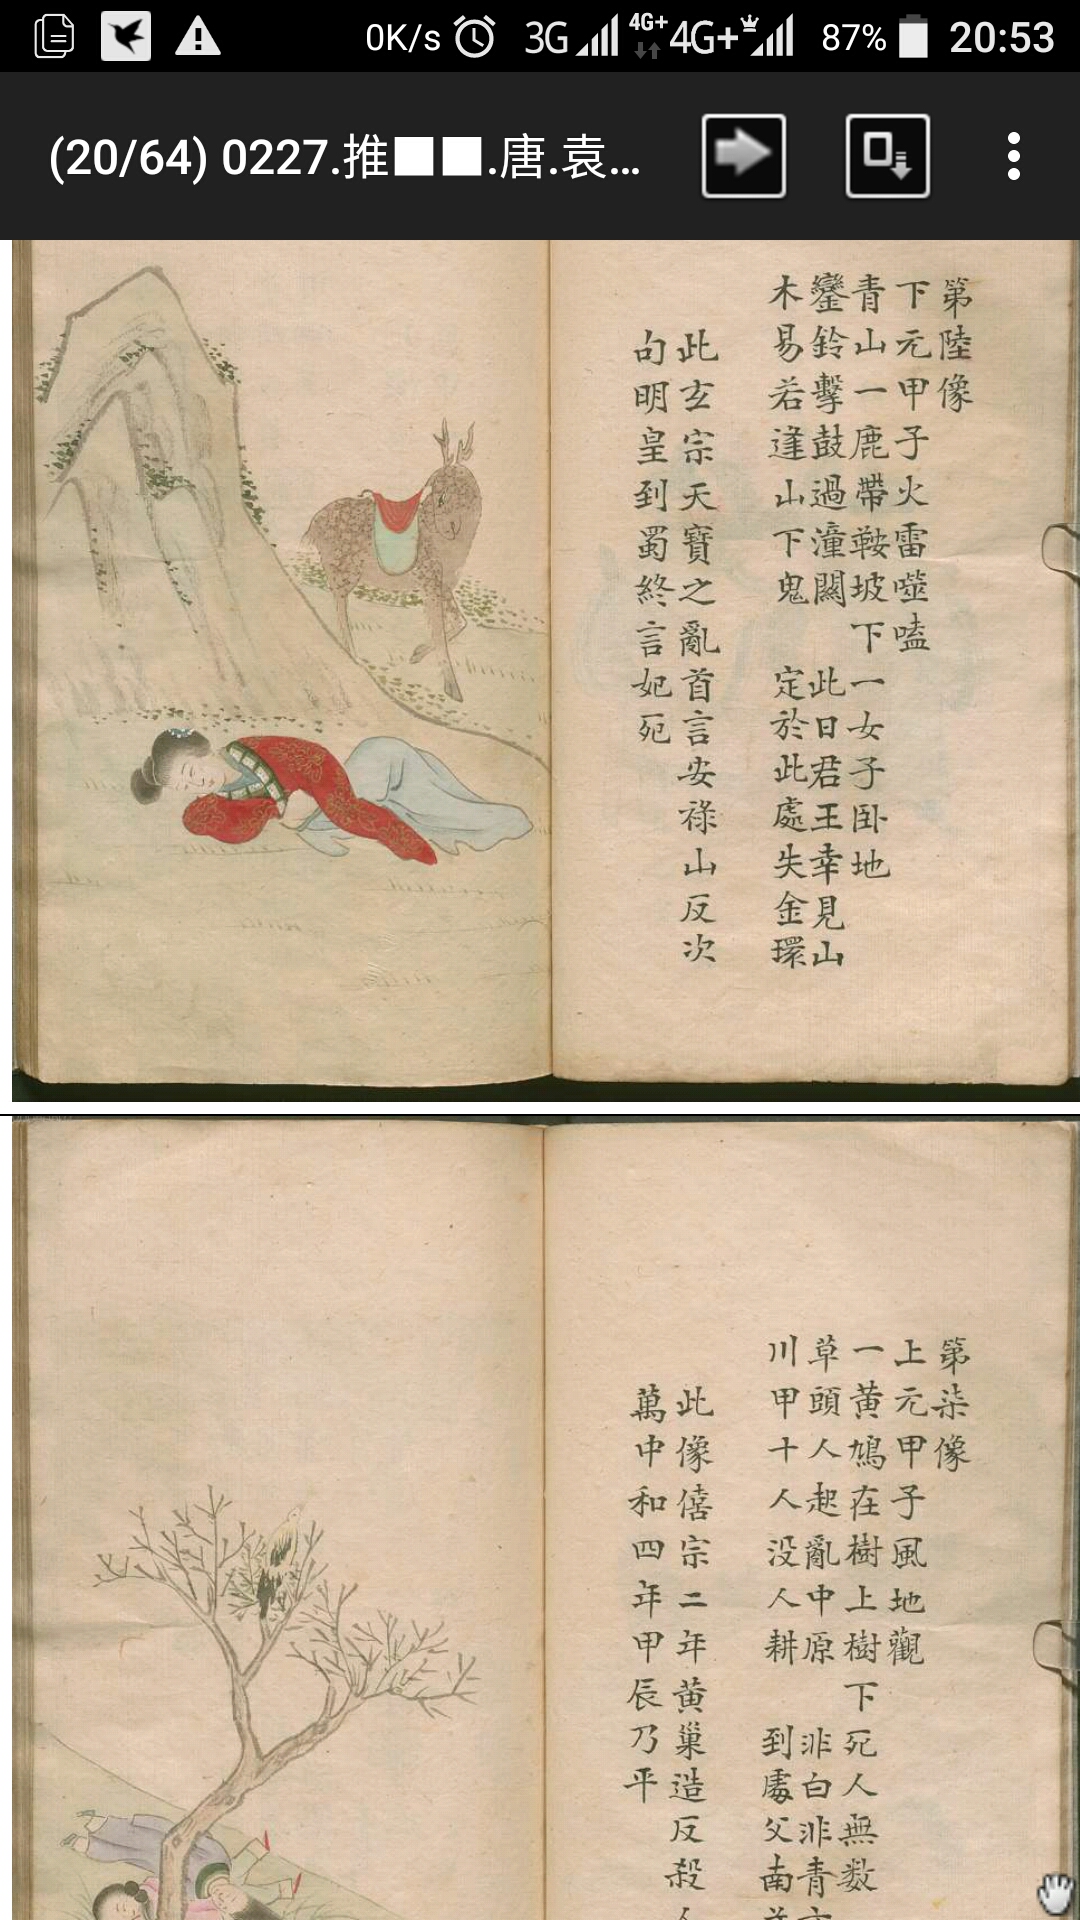 0K/s 3G 4G+ 4G+ 87% 20:53
(20/64) 0227.推■■.唐.袁...
第陸像
下元甲子火雷噬嗑
青山一鹿帶鞍坡下一女子卧地
鑾鈴擊鼓過潼關 此日君王幸見山
木易若逢山下鬼 定於此處失金環
此玄宗天寶之亂首言安祿山反次
句明皇到蜀終言妃死
第柒像
上元甲子風地觀
一黃鳩在樹上樹下死人無数
草頭人起亂中原 非白非青
川甲十人没人耕 到處父南
此像僖宗二年黃巢造反殺人
萬中和四年甲辰乃平